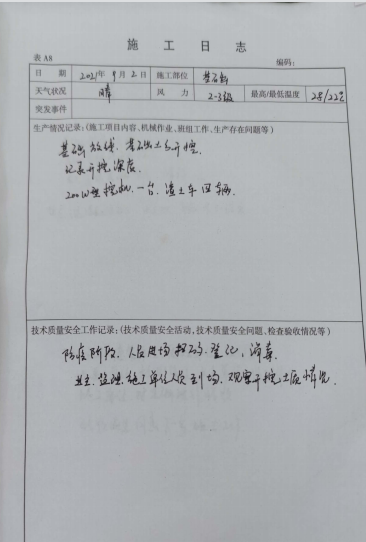 施工日志
表A8 编码:
日期 2021年9月2日 施工部位 基础
天气状况 晴 风力 2-3级 最高/最低温度 28/22℃
突发事件
生产情况记录:(施工项目内容、机械作业、班组工作、生产存在问题等)
基础放线、基础土方开挖.
记录开挖深度.
200型挖机.一台.渣土车四辆.
技术质量安全工作记录:(技术质量安全活动,技术质量安全问题、检查验收情况等)
防疫阶段.人员进场扫码.登记,消毒.
业主.监理.施工单位人员到场.观察开挖土质情况.